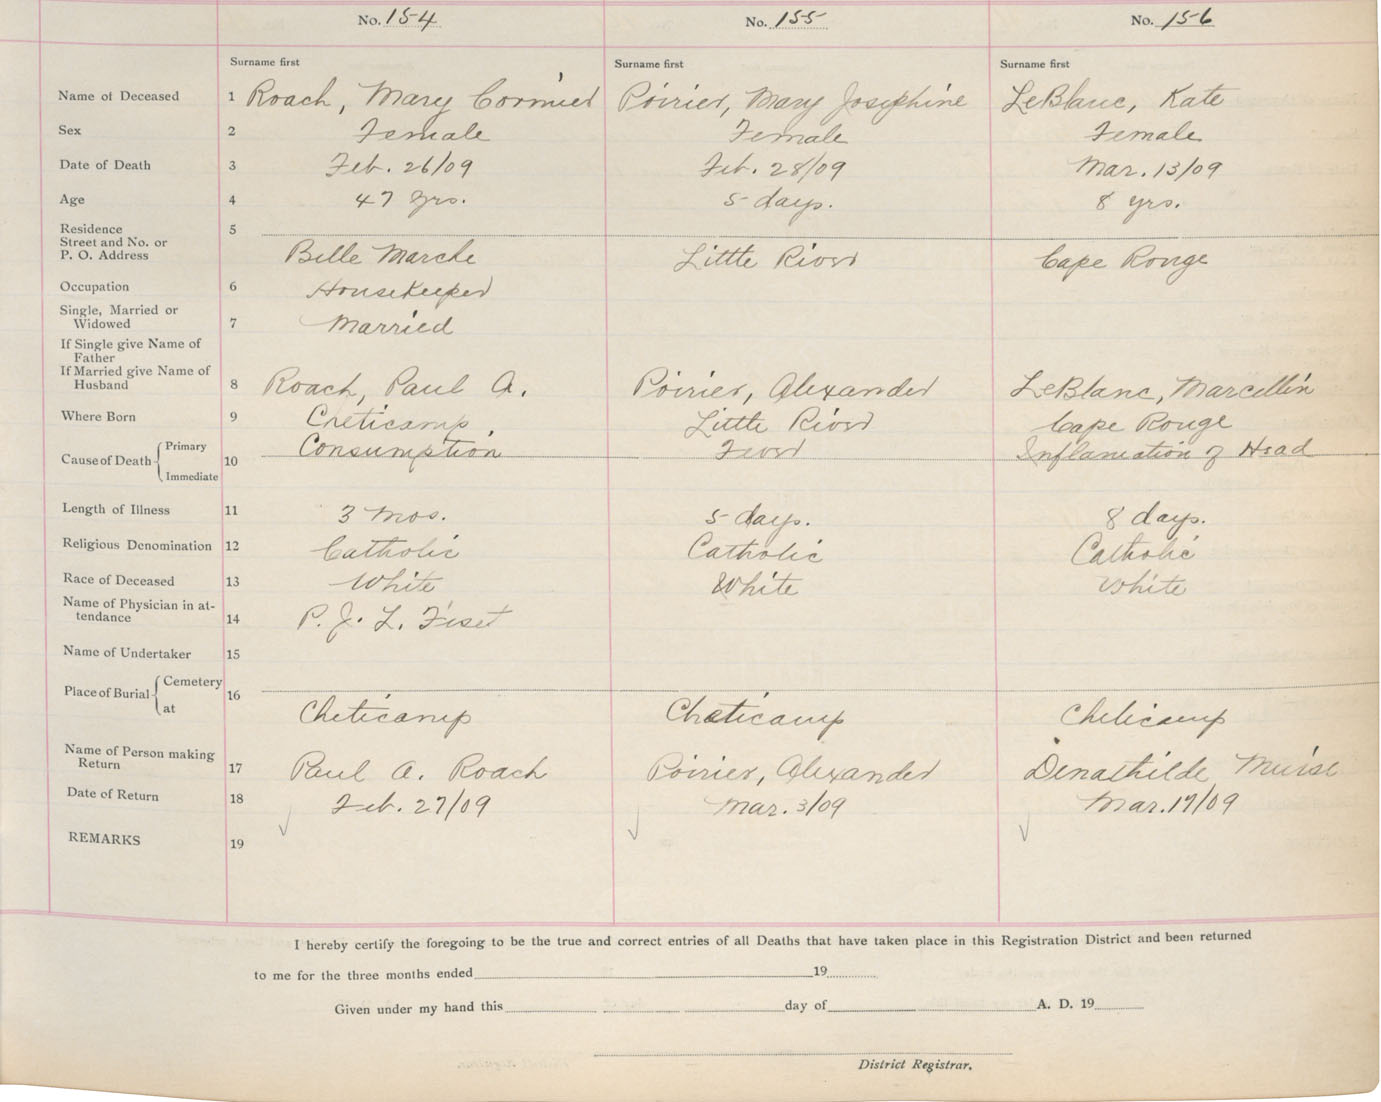 No. 154 No. 155 No. 156
Surname first Surname first Surname first
Name of Deceased 1 Roach, Mary Cormier Poirier, Mary Josephine LeBlanc, Kate
Sex 2 Female Female Female
Date of Death 3 Feb. 26/09 Feb. 28/09 Mar. 13/09
Age 4 47 yrs. 5 days. 8 yrs.
Residence 5
Street and No. or
P. O. Address Belle Marche Little River Cape Rouge
Occupation 6 Housekeeper
Single, Married or
Widowed 7 Married
If Single give Name of
Father
If Married give Name of
Husband 8 Roach, Paul A. Poirier, Alexander LeBlanc, Marcellin
Where Born 9 Cheticamp, Little River Cape Rouge
Cause of Death { Primary 10 Consumption Fever Inflamation of Head
Immediate
Length of Illness 11 3 mos. 5 days. 8 days.
Religious Denomination 12 Catholic Catholic Catholic
Race of Deceased 13 White White White
Name of Physician in at-
tendance 14 P. J. L. Fiset
Name of Undertaker 15
Place of Burial { Cemetery 16
at Cheticamp Cheticamp Cheticamp
Name of Person making
Return 17 Paul A. Roach Poirier, Alexander Denathilde Muise
Date of Return 18 Feb. 27/09 Mar. 3/09 Mar. 17/09
REMARKS 19
I hereby certify the foregoing to be the true and correct entries of all Deaths that have taken place in this Registration District and been returned
to me for the three months ended 19
Given under my hand this day of A. D. 19
District Registrar.